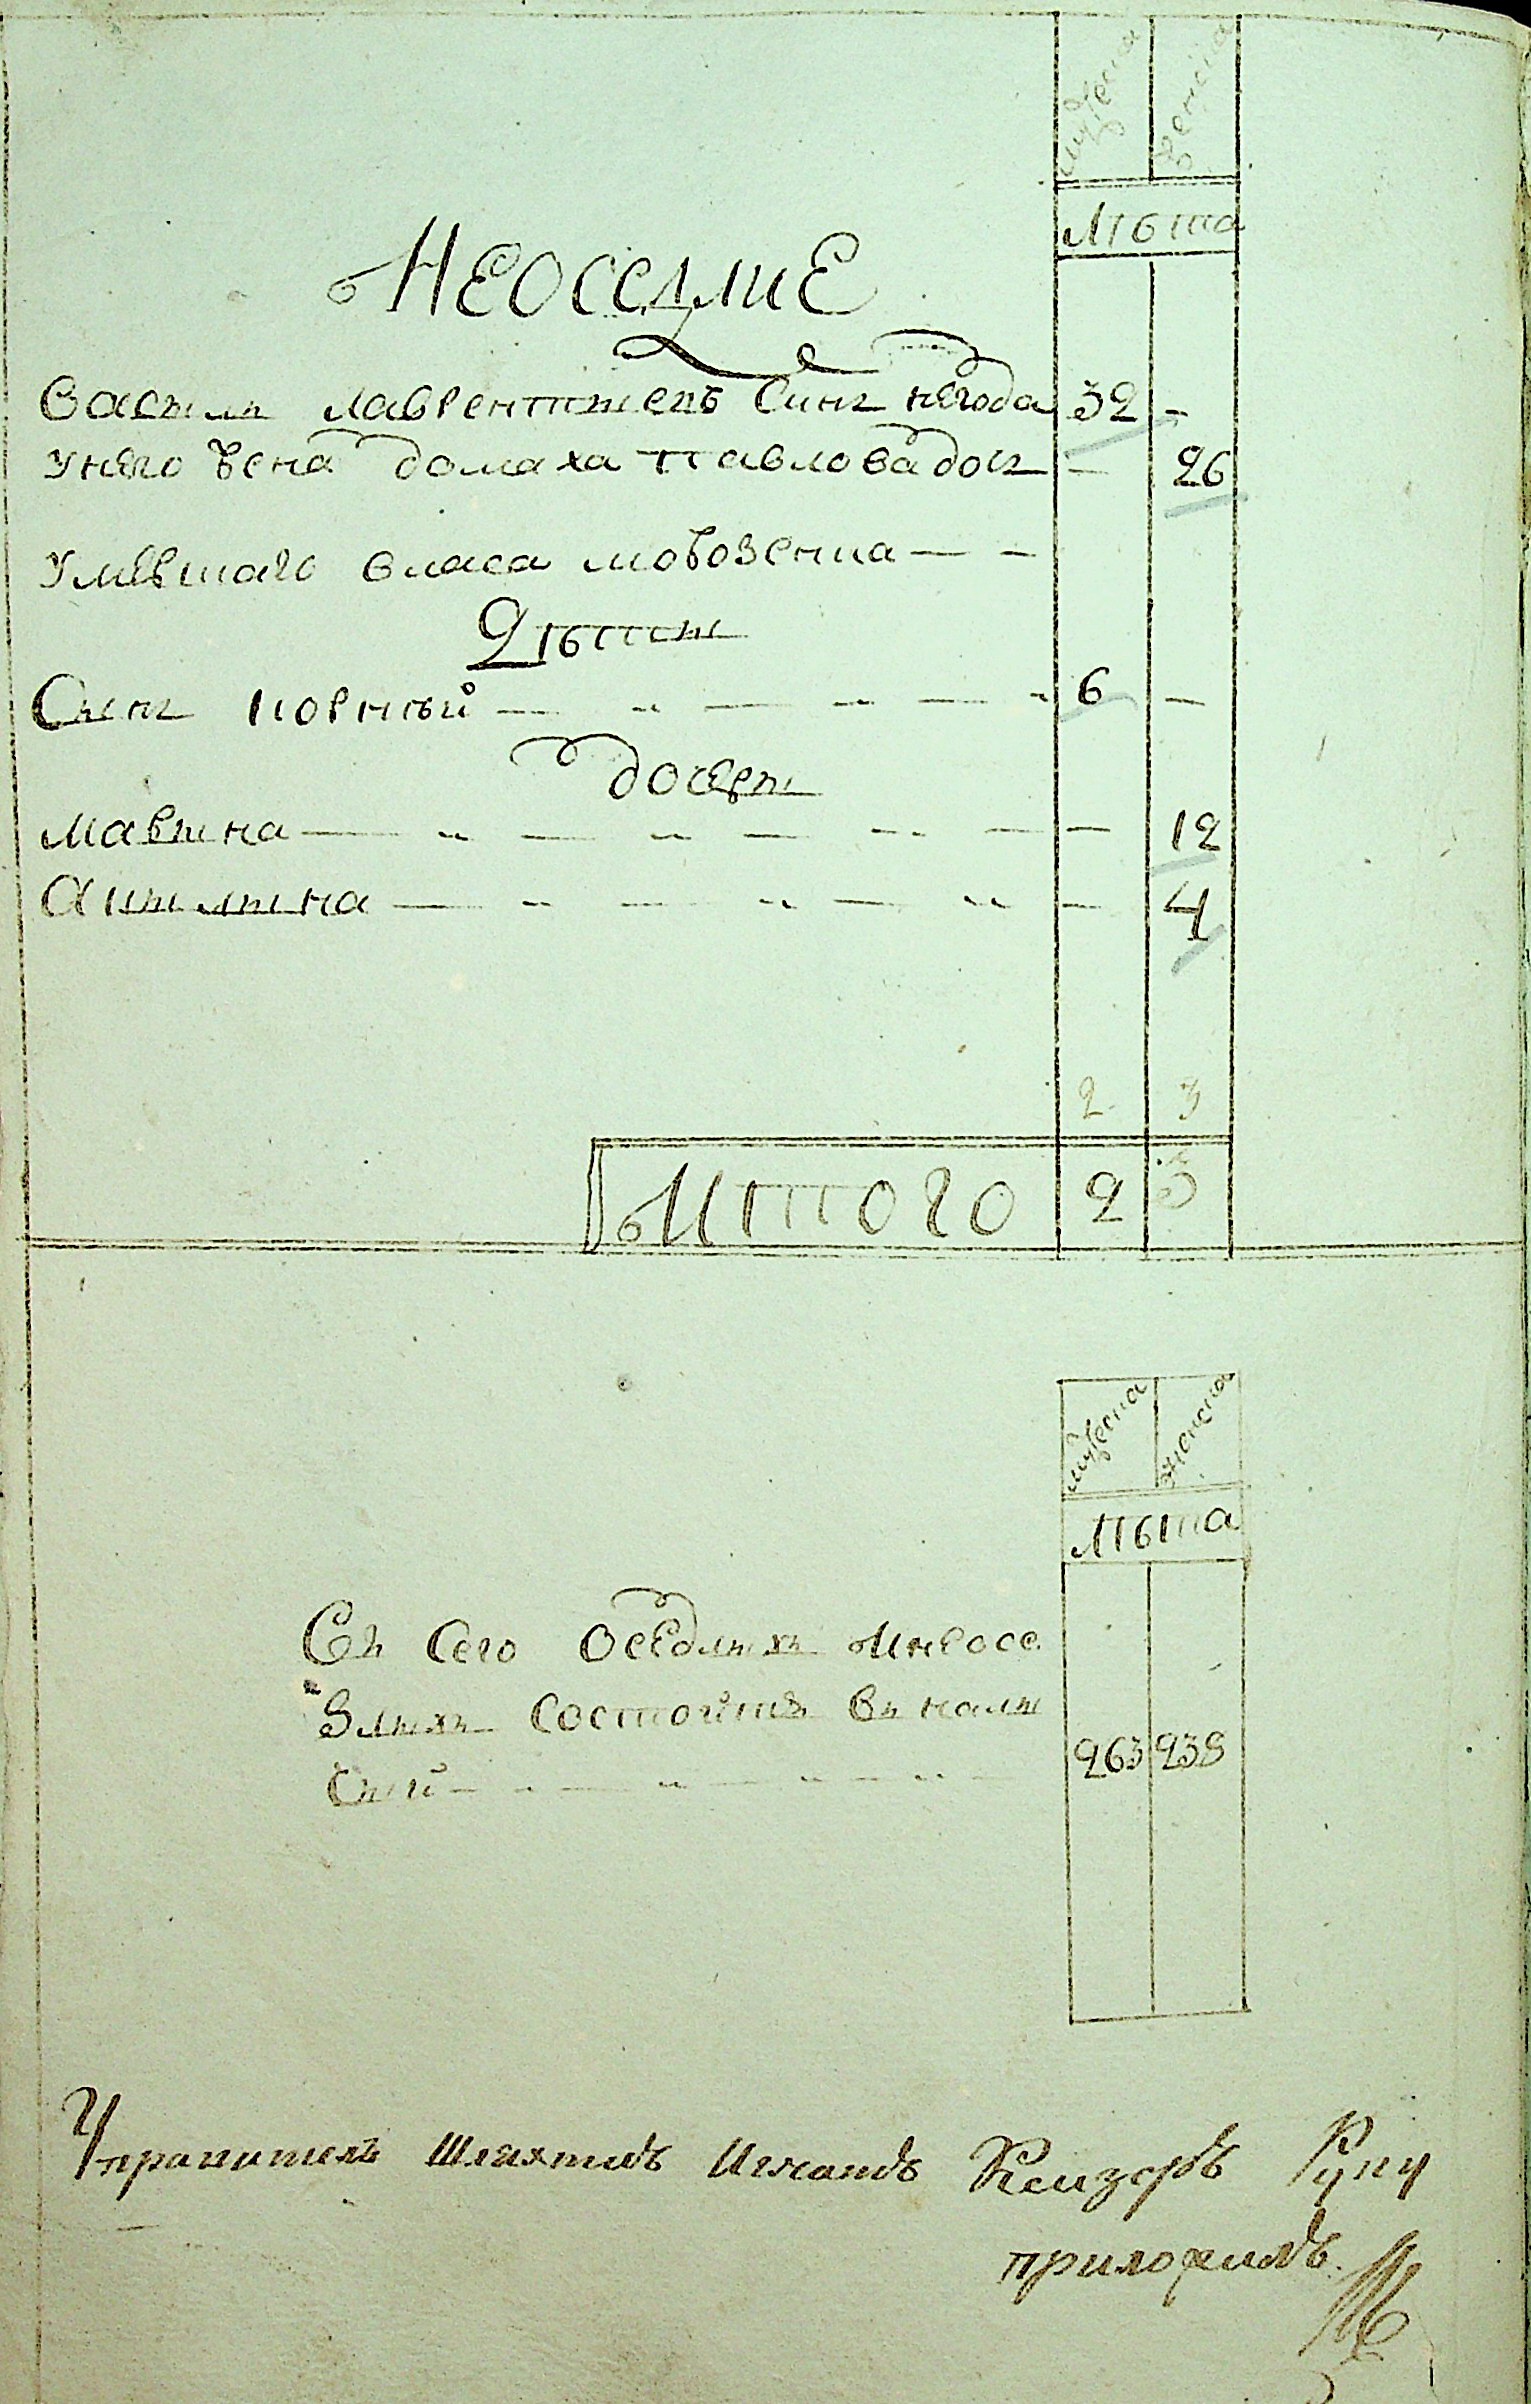 мужеска женска
Лѣта
НЕОСЕДЛИЕ
Василь Лаврентиевъ Синъ Негода 32 -
У него жена Домаха Павлова доч - 26
Умершаго Власа Морозенка - -
Дѣти
Синъ Корнѣй - " - " - " 6 -
дочери
Марина - " - " - " - - 12
Акилина - " - " - " - 4
2 3
Итого 2 3
мужеска женска
Лѣта
Съ Сего Оседлихъ Инеосе
длихъ Состоитъ Внали
Сий - " - " - " 263 238
Управитель Шляхтичъ Игнатъ Кеизеръ Руку
приложилъ.